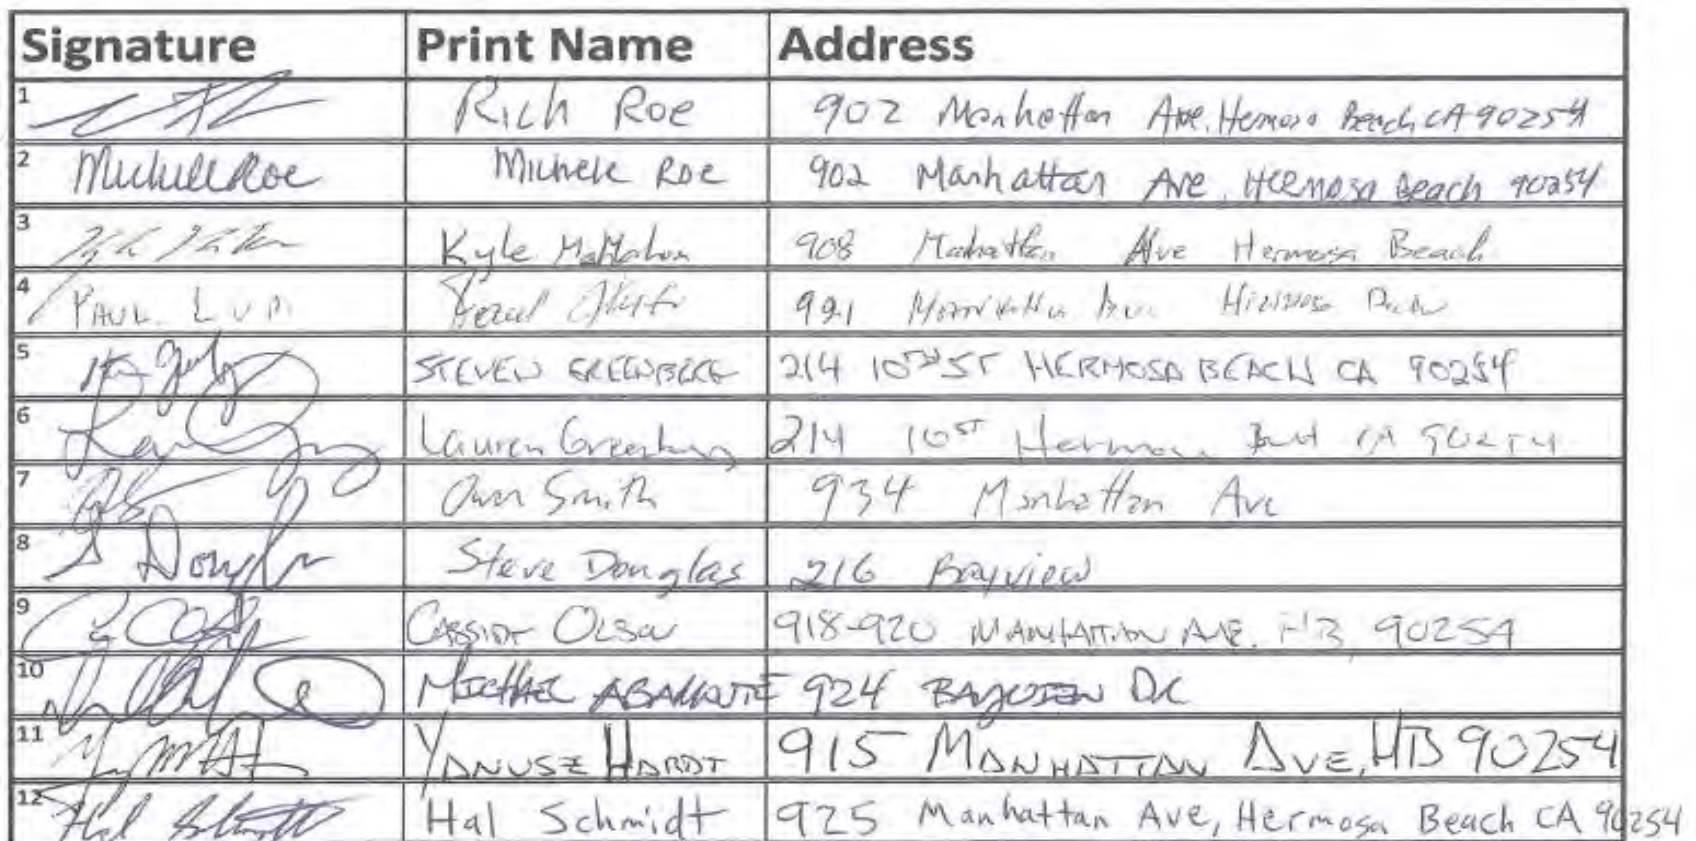 Signature Print Name Address
1 Rich Roe 902 Manhattan Ave, Hermosa Beach CA 90254
2 Michele Roe Michele Roe 902 Manhattan Ave, Hermosa Beach 90254
3 Kyle McMahon 908 Manhattan Ave Hermosa Beach
4 PAUL 921
5 STEVEN GREENBERG 214 10TH ST HERMOSA BEACH CA 90254
6 Lauren Greenburg 214 10ST Hermosa CA 90254
7 Owen Smith 934 Manhattan Ave
8 S Douglas Steve Douglas 216 Bayview
9 CASSIDY OLSON 918-920 MANHATTAN AVE. HB 90254
10 MICHAEL 924 BAYVIEW DR
11 YANUSZ HARDT 915 MANHATTAN AVE, HB 90254
12 Hal Schmidt Hal Schmidt 925 Manhattan Ave, Hermosa Beach CA 90254